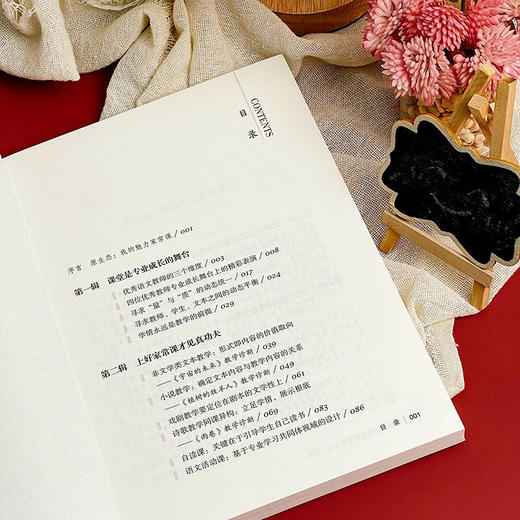 CONTENTS
目 录
序言 原生态：我的魅力家常课 / 001
第一辑 课堂是专业成长的舞台
优秀语文教师的三个维度 / 003
四位优秀教师专业成长舞台上的精彩表演 / 008
寻求“量”与“质”的动态统一 / 017
寻求教师、学生、文本之间的动态平衡 / 024
学情永远是教学的前提 / 029
第二辑 上好家常课才见真功夫
非文学类文本教学：形式即内容的价值取向
——《宇宙的未来》教学诊断 / 039
小说教学：确定文本内容与教学内容的关系
——《植树的牧羊人》教学诊断 / 049
戏剧教学要定位在剧本的文学性上 / 061
诗歌教学同课异构：立足学情，展示根底
——《雨巷》教学诊断 / 069
自读课：关键在于引导学生自己读书 / 083
语文活动课：基于专业学习共同体视域的设计 / 086
目 录 001